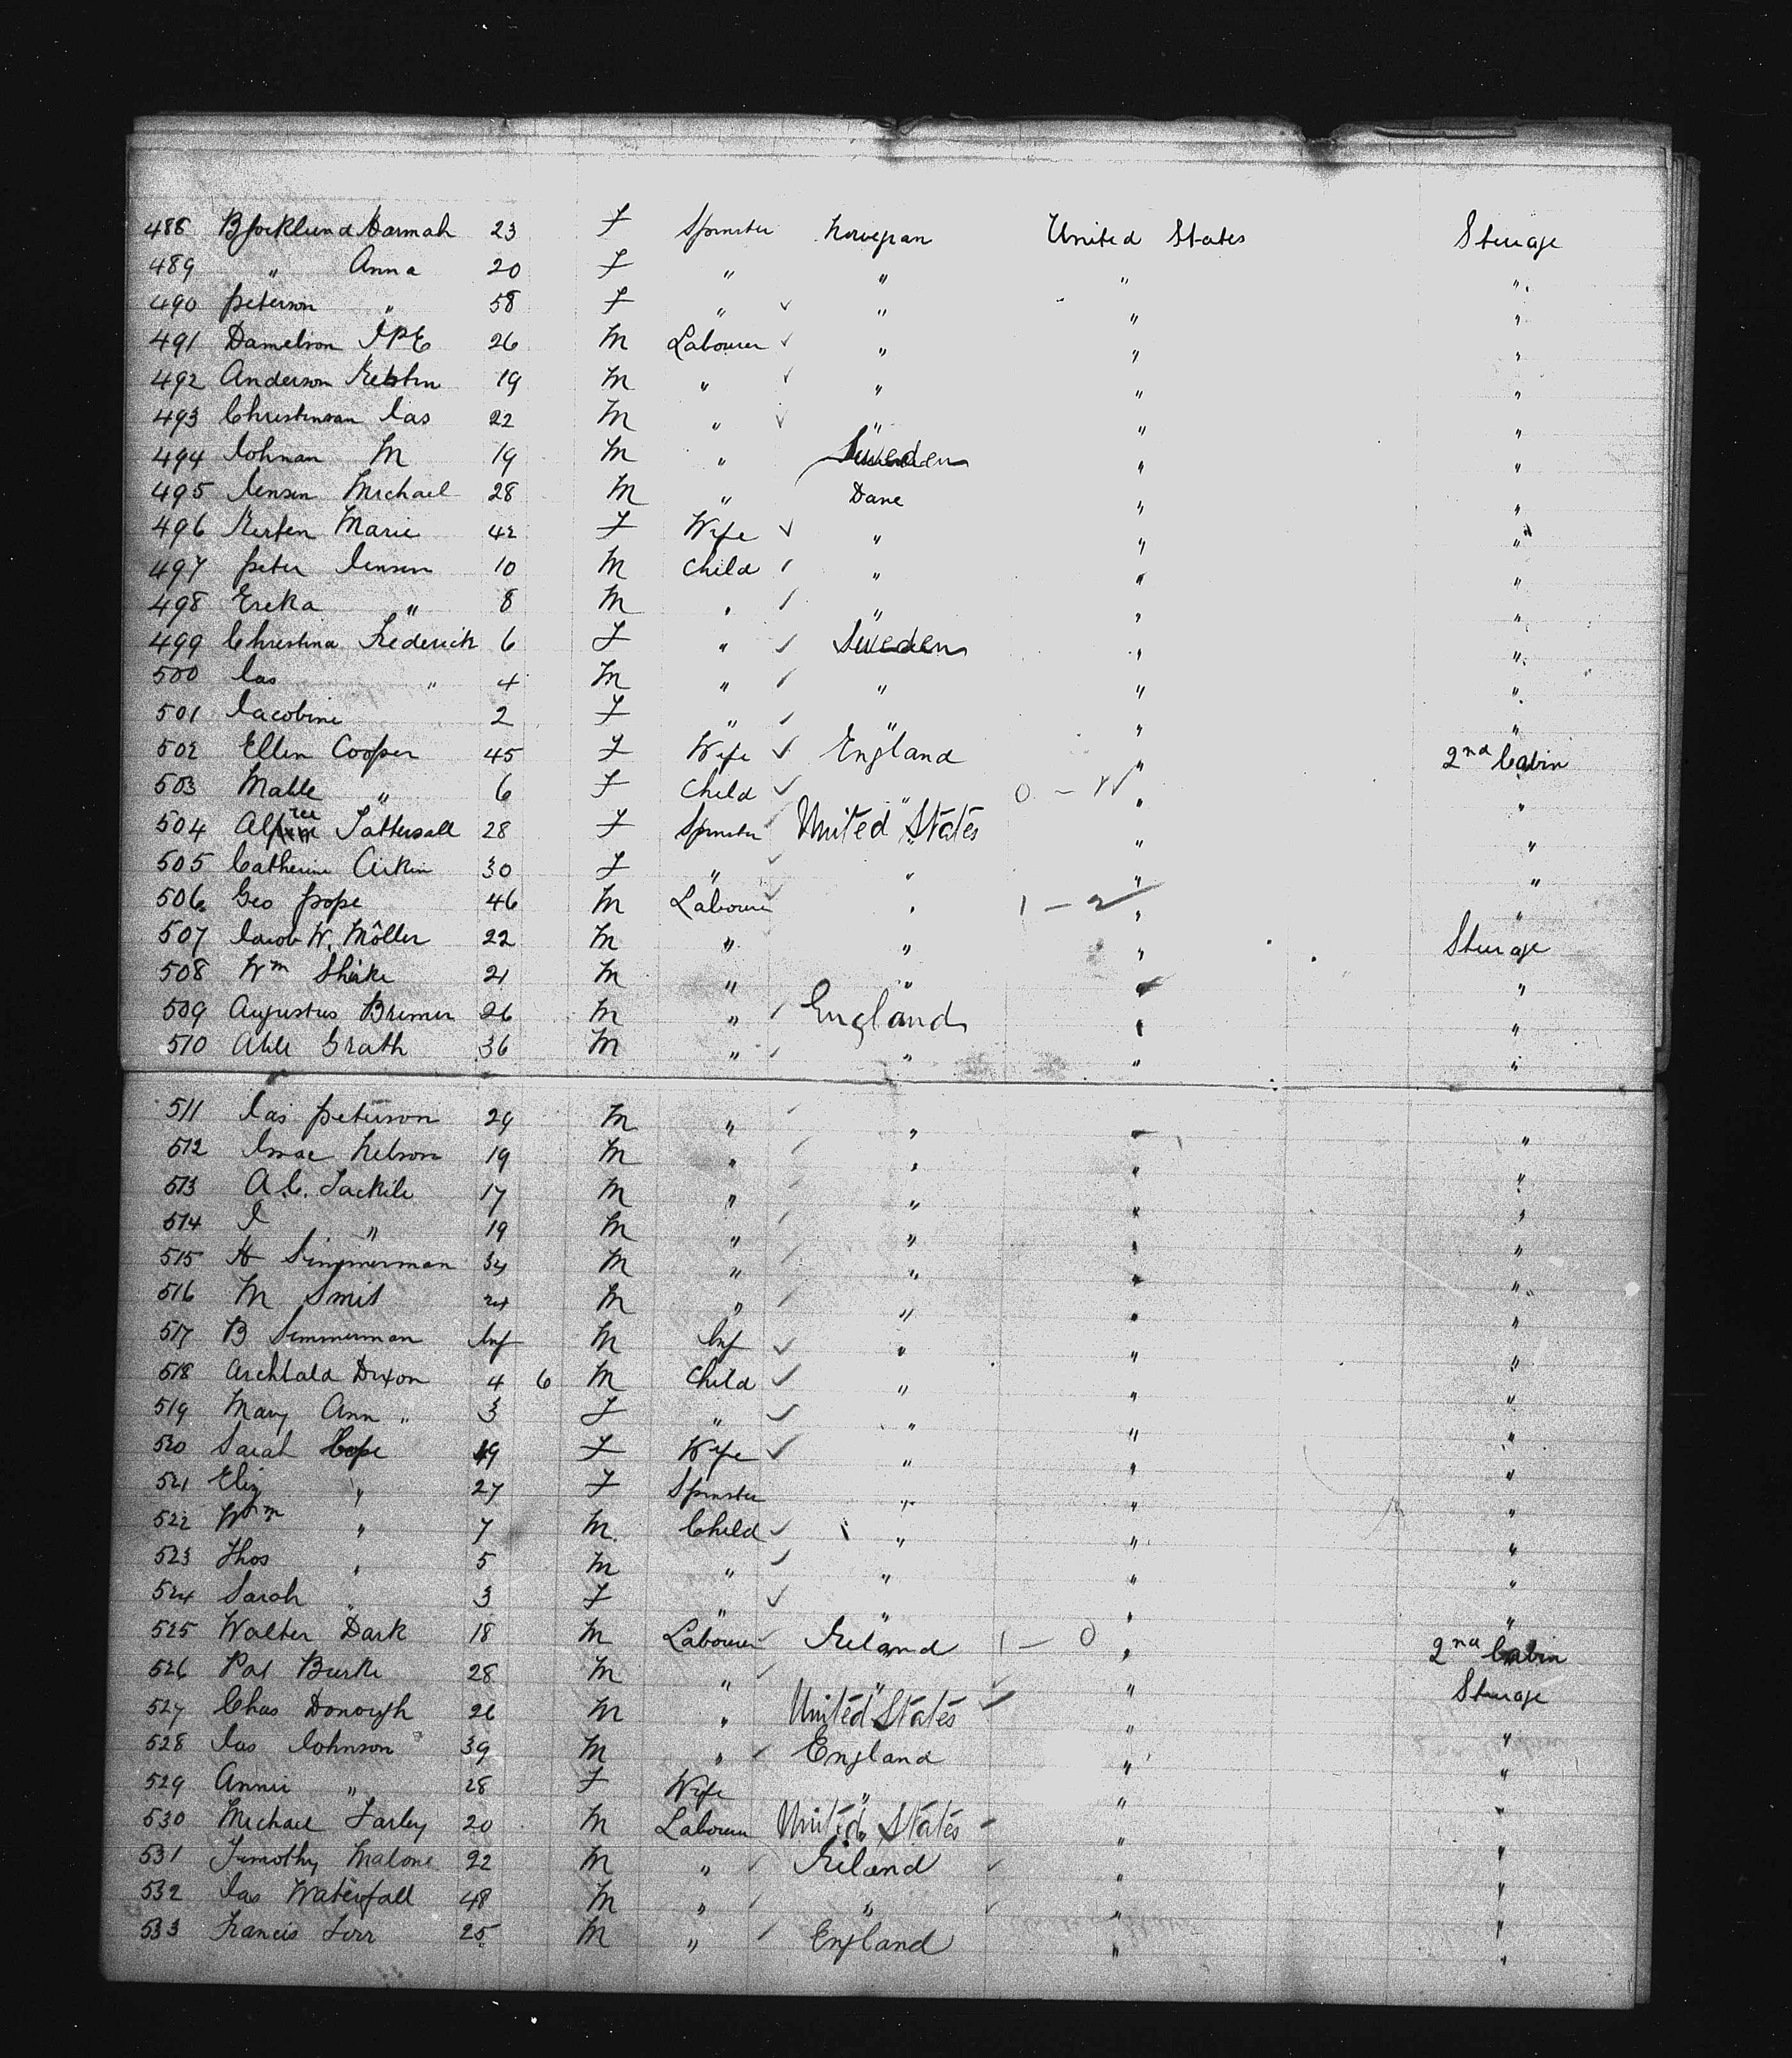 488 Bjorklund Hannah 23 F Spinster Norwegian United States Sterage
489 " Anna 20 F " " " "
490 Peterson " 58 F " " " "
491 Danielson 26 M Labourer " " "
492 Anderson 19 M " " " "
493 Christenson Jas 22 M " " " "
494 Johnan M 19 M " Sweden " "
495 Jensen Michael 28 M " Dane " "
496 Kirsten Marie 42 F Wife " " "
497 Peter Jensen 10 M Child " " "
498 Ereka " 8 M " " " "
499 Christina Frederick 6 F " Sweden " "
500 Jas " 4 M " " " "
501 Jacobine 2 F " " " "
502 Ellen Cooper 45 F Wife England " 2nd Cabin
503 Mable " 6 F Child " " "
504 Tattersall 28 F Spinster United States " "
505 Catherine Aikin 30 F " " " "
506 Geo Pope 46 M Labourer " 1 - 2 " "
507 Jacob W. Môller 22 M " " " Sterage
508 Wm 21 M " " " "
509 Augustus Bremer 26 M " England " "
510 Grath 36 M " " " "
511 Jas Peterson 29 M " " " "
512 Isaac Nelson 19 M " " " "
513 A.C. 17 M " " " "
514 J " 19 M " " " "
515 Simmerman 34 M " " " "
516 M Smit 24 M " " " "
517 B Simmerman Inf M Inf " " "
518 Archbald Dixon 4 6 M Child " " "
519 Mary Ann " 3 F " " " "
520 Sarah Cope 49 F Wife " " "
521 Eliz " 27 F Spinster " " "
522 Wm " 7 M Child " " "
523 Thos " 5 M " " " "
524 Sarah " 3 F " " " "
525 Walter Dark 18 M Labourer Ireland 1 - 0 " 2nd Cabin
526 Pat Burke 28 M " " " Sterage
527 Chas Donough 26 M " United States " "
528 Jas Johnson 39 M " England " "
529 Annie " 28 F Wife " " "
530 Michael Farley 20 M Labourer United States " "
531 Timothy Malone 22 M " Ireland " "
532 Jas Waterfall 48 M " " " "
533 Francis 25 M " England " "